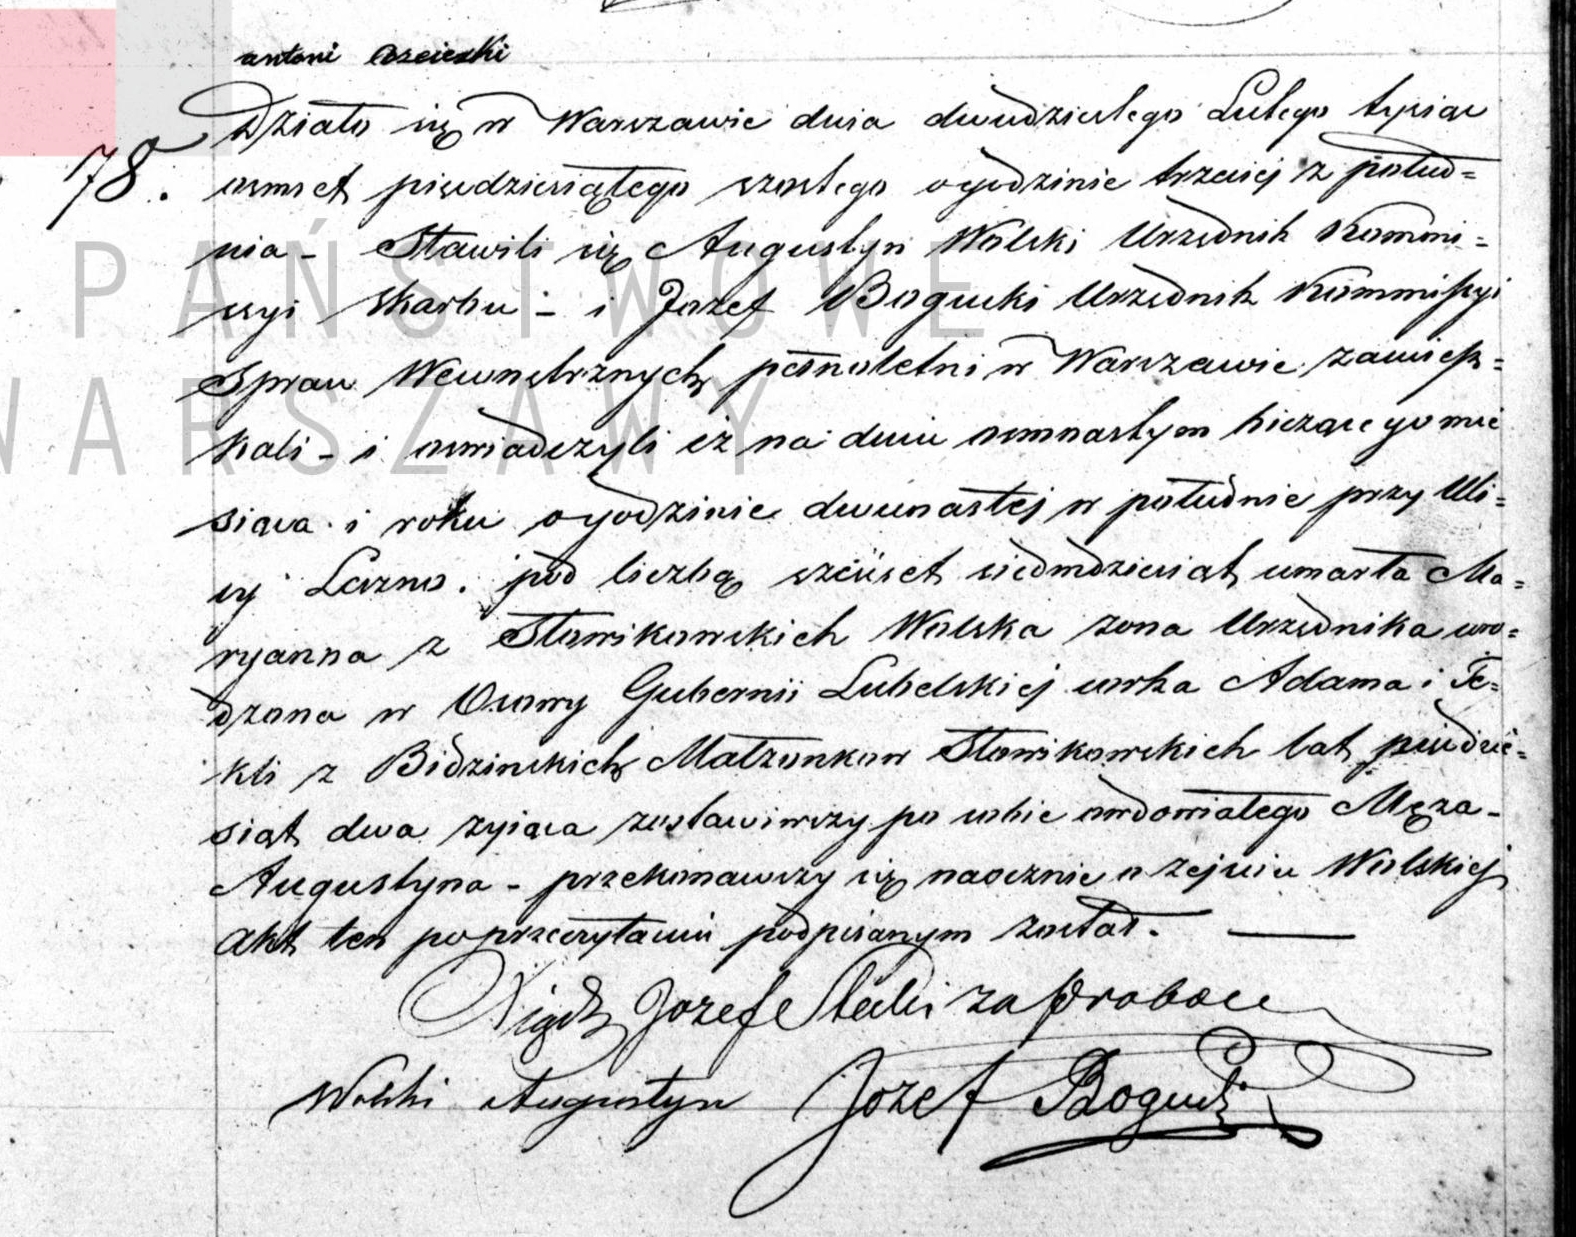 antoni
78.
Działo się w Warszawie dnia dwudziestego Lutego tysiąc
osmset pięcdziesiątego szostego o godzinie trzeciej z połud=
nia - Stawili się Augustyn Wolski Urzednik Kommi=
syi Skarbu - i Jozef Bogucki Urzednik Kommissyi
Spraw Wewnetrznych pełnoletni w Warszawie zamiesz=
kali - i oswiadczyli iż na dniu osmnastym biezącego mie
siąca i roku o godzinie dwunastej w południe przy Uli=
cy Leszno. pod liczbą szescset siedmdziesiąt umarła Ma=
ryanna z Słowikowskich Wolska zona Urzednika uro=
dzona w Osowy Gubernii Lubelskiej corka Adama i Te=
kli z Bidzinskich Małzonkow Słowikowskich lat piecdzie=
siąt dwa zyiąca zostawiwszy po sobie owdowiałego Męza -
Augustyna - przekonawszy się naocznie o zejsciu Wolskiej
Akt ten po przeczytaniu podpisanym został.
Xiądz Jozef Stecki za Proboszcza
Wolski Augustyn Jozef Bogucki
PAŃSTWOWE
WARSZAWY